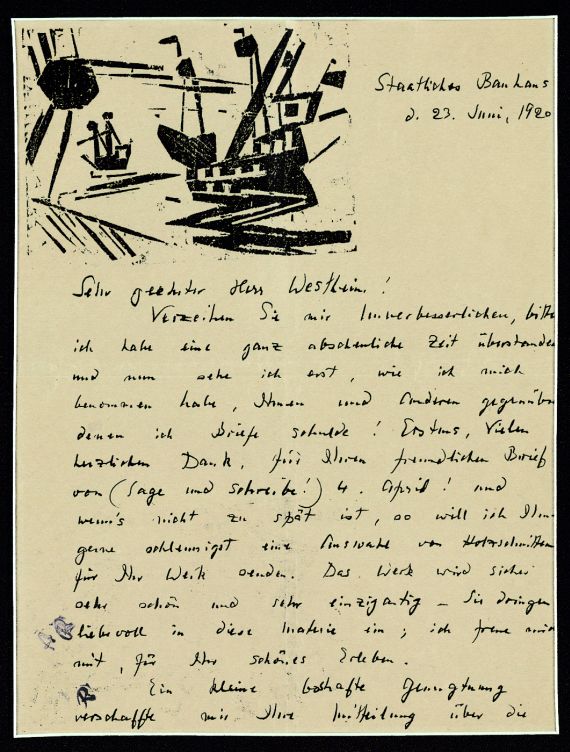 Staatliches Bauhaus
d. 23. Juni, 1920
Sehr geehrter Herr Westheim!
Verzeihen Sie mir Unverbesserlichen, bitte
ich habe eine ganz abscheuliche Zeit überstanden
und nun sehe ich erst, wie ich mich
benommen habe, Ihnen und Anderen gegenüber
denen ich Briefe schulde! Erstens, Vielen
herzlichen Dank, für Ihren freundlichen Brief
von (sage und schreibe!) 4. April! und
wenn's nicht zu spät ist, so will ich Ihnen
gerne schleunigst eine Auswahl von Holzschnitten
für Ihr Werk senden. Das Werk wird sicher
sehr schön und sehr einzigartig – Sie dringen
liebevoll in diese Materie ein; ich freue mich
mit, für Ihr schönes Erleben.
Ein kleine boshafte Genugtuung
verschaffte mir Ihre Mitteilung über die